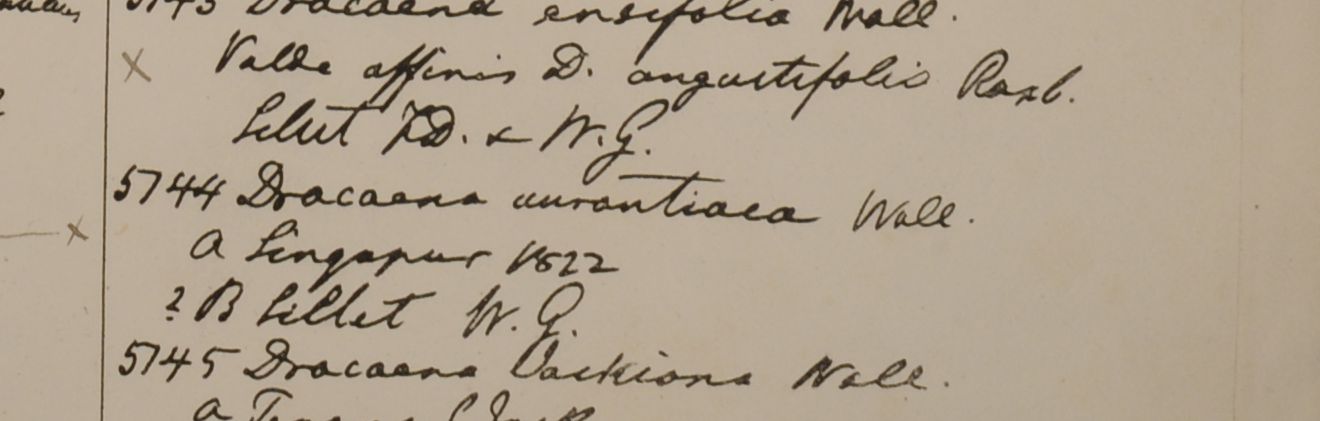 5143 Dracaena ensifolia Wall.
x Valde affinis D. angustifolia Roxb.
Silet F.D. & W.G.
5744 Dracaena aurantiaca Wall.
x
a Singapur 1822
? B Sillet W.G.
5145 Dracaena Jackiana Wall.
a Jack